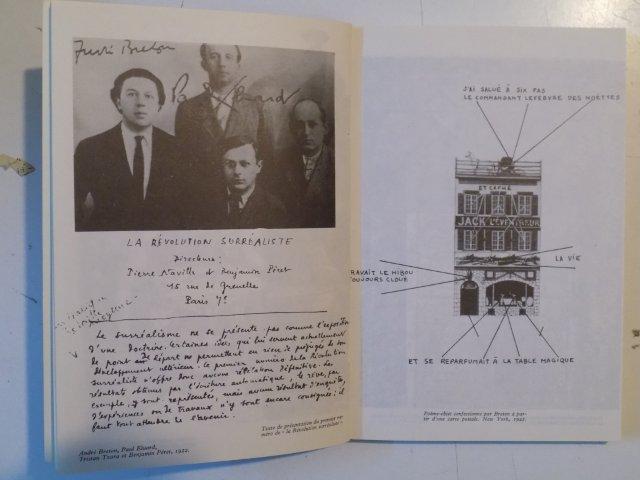 André Breton
Paul Eluard
LA RÉVOLUTION SURRÉALISTE
Directeurs:
Pierre Naville et Benjamin Péret
15 rue de Grenelle
Paris 7e
Le surréalisme ne se présente pas comme l'exposition
d'une doctrine. Certaines idées qui lui servent actuellement
de point de départ ne permettent en rien de préjuger de son
développement ultérieur. Le premier numéro de la Révolution
surréaliste n'offre donc aucune révélation définitive. Les
résultats obtenus par l'écriture automatique, le rêve, par
exemple, y sont représentés, mais aucun résultat d'enquêtes,
d'expériences ou de travaux n'y sont encore consignés: il
faut tout attendre de l'avenir.
André Breton, Paul Eluard,
Tristan Tzara et Benjamin Péret, 1922.
Texte de présentation du premier nu-
méro de « la Révolution surréaliste »
J'AI SALUÉ À SIX PAS
LE COMMANDANT LEFEBVRE DES NOËTTES
ET CAFHÉ
JACK L'ÉVENTREUR
LA VIE
RAVAIT LE HIBOU
OUJOURS CLOUÉ
ET SE REPARFUMAIT À LA TABLE MAGIQUE
Poème-objet confectionné par Breton à par-
tir d'une carte postale. New York, 1942.